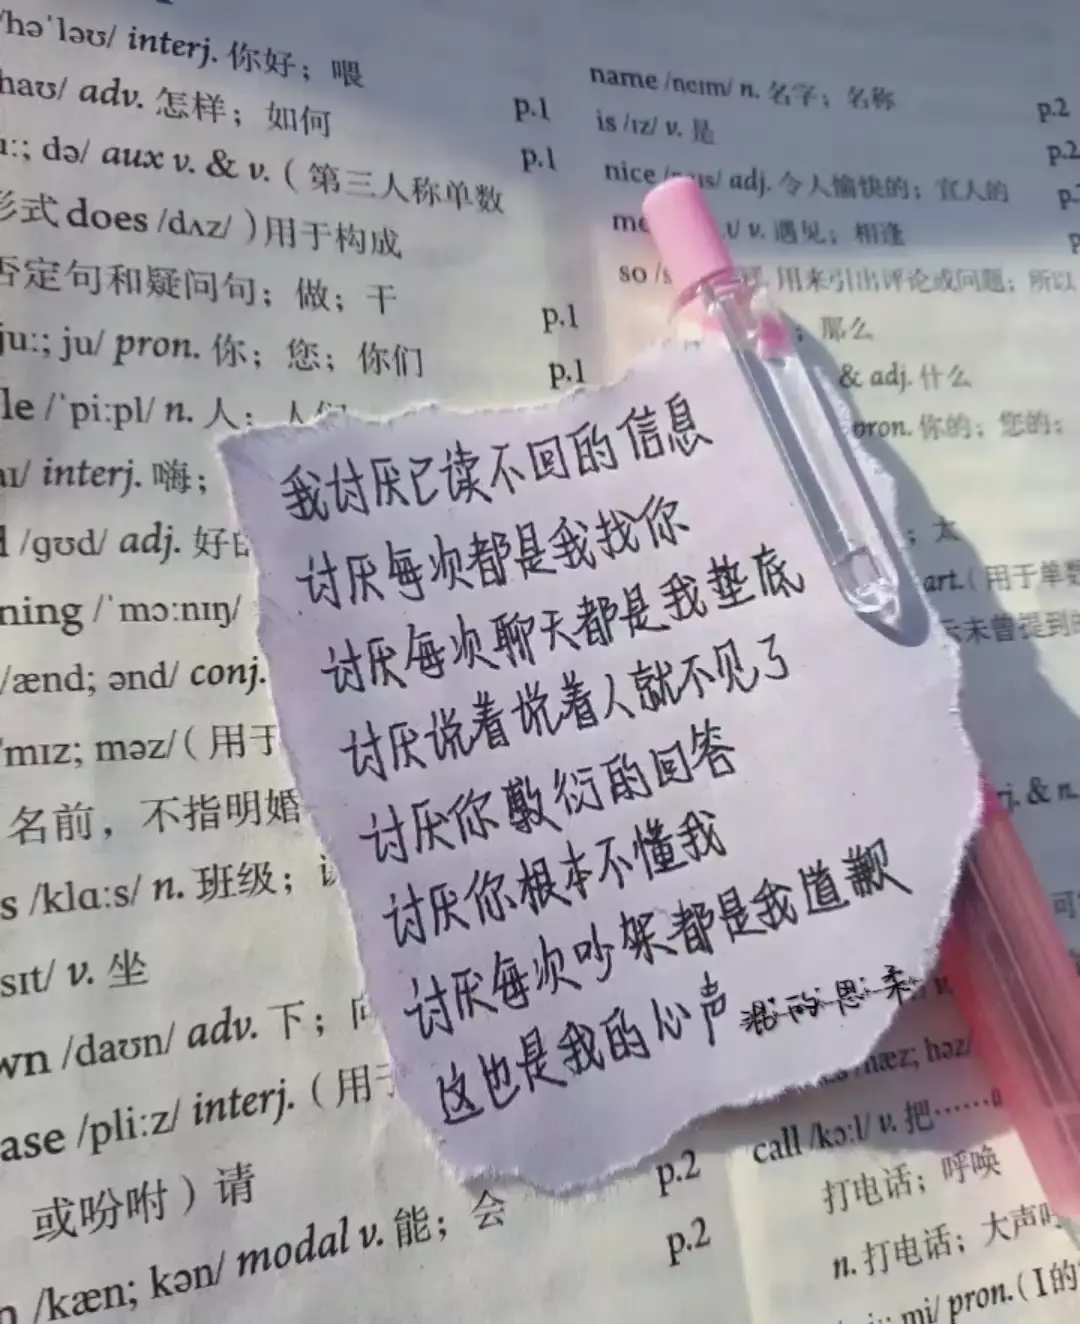 /həˈləʊ/ interj. 你好；喂
haʊ/ adv. 怎样；如何 p.1
uː; də/ aux v. & v.（第三人称单数 p.1
形式 does /dʌz/）用于构成
否定句和疑问句；做；干
juː; ju/ pron. 你；您；你们 p.1
le /ˈpiːpl/ n. 人； p.1
aɪ/ interj. 嗨；
d /ɡʊd/ adj. 好
ning /ˈmɔːnɪŋ/
/ænd; ənd/ conj.
ˈmɪz; məz/（用于
名前，不指明婚
s /klɑːs/ n. 班级；
sɪt/ v. 坐
wn /daʊn/ adv. 下；向
ase /pliːz/ interj.（用于
或吩咐）请 p.2
n /kæn; kən/ modal v. 能；会 p.2
name /neɪm/ n. 名字；名称 p.2
is /ɪz/ v. 是 p.2
nice adj. 令人愉快的；宜人的
me v. 遇见；相逢
so 用来引出评论或问题；所以
；那么
& adj. 什么
pron. 你的；您的；
；太
art.（用于单数
未曾提到的
我讨厌已读不回的信息
讨厌每次都是我找你
讨厌每次聊天都是我垫底
讨厌说着说着人就不见了
讨厌你敷衍的回答
讨厌你根本不懂我
讨厌每次吵架都是我道歉
这也是我的心声
& n.
可
hæz; həz/
call /kɔːl/ v. 把……
打电话；呼唤
n. 打电话；大声呼
mi/ pron.（I 的